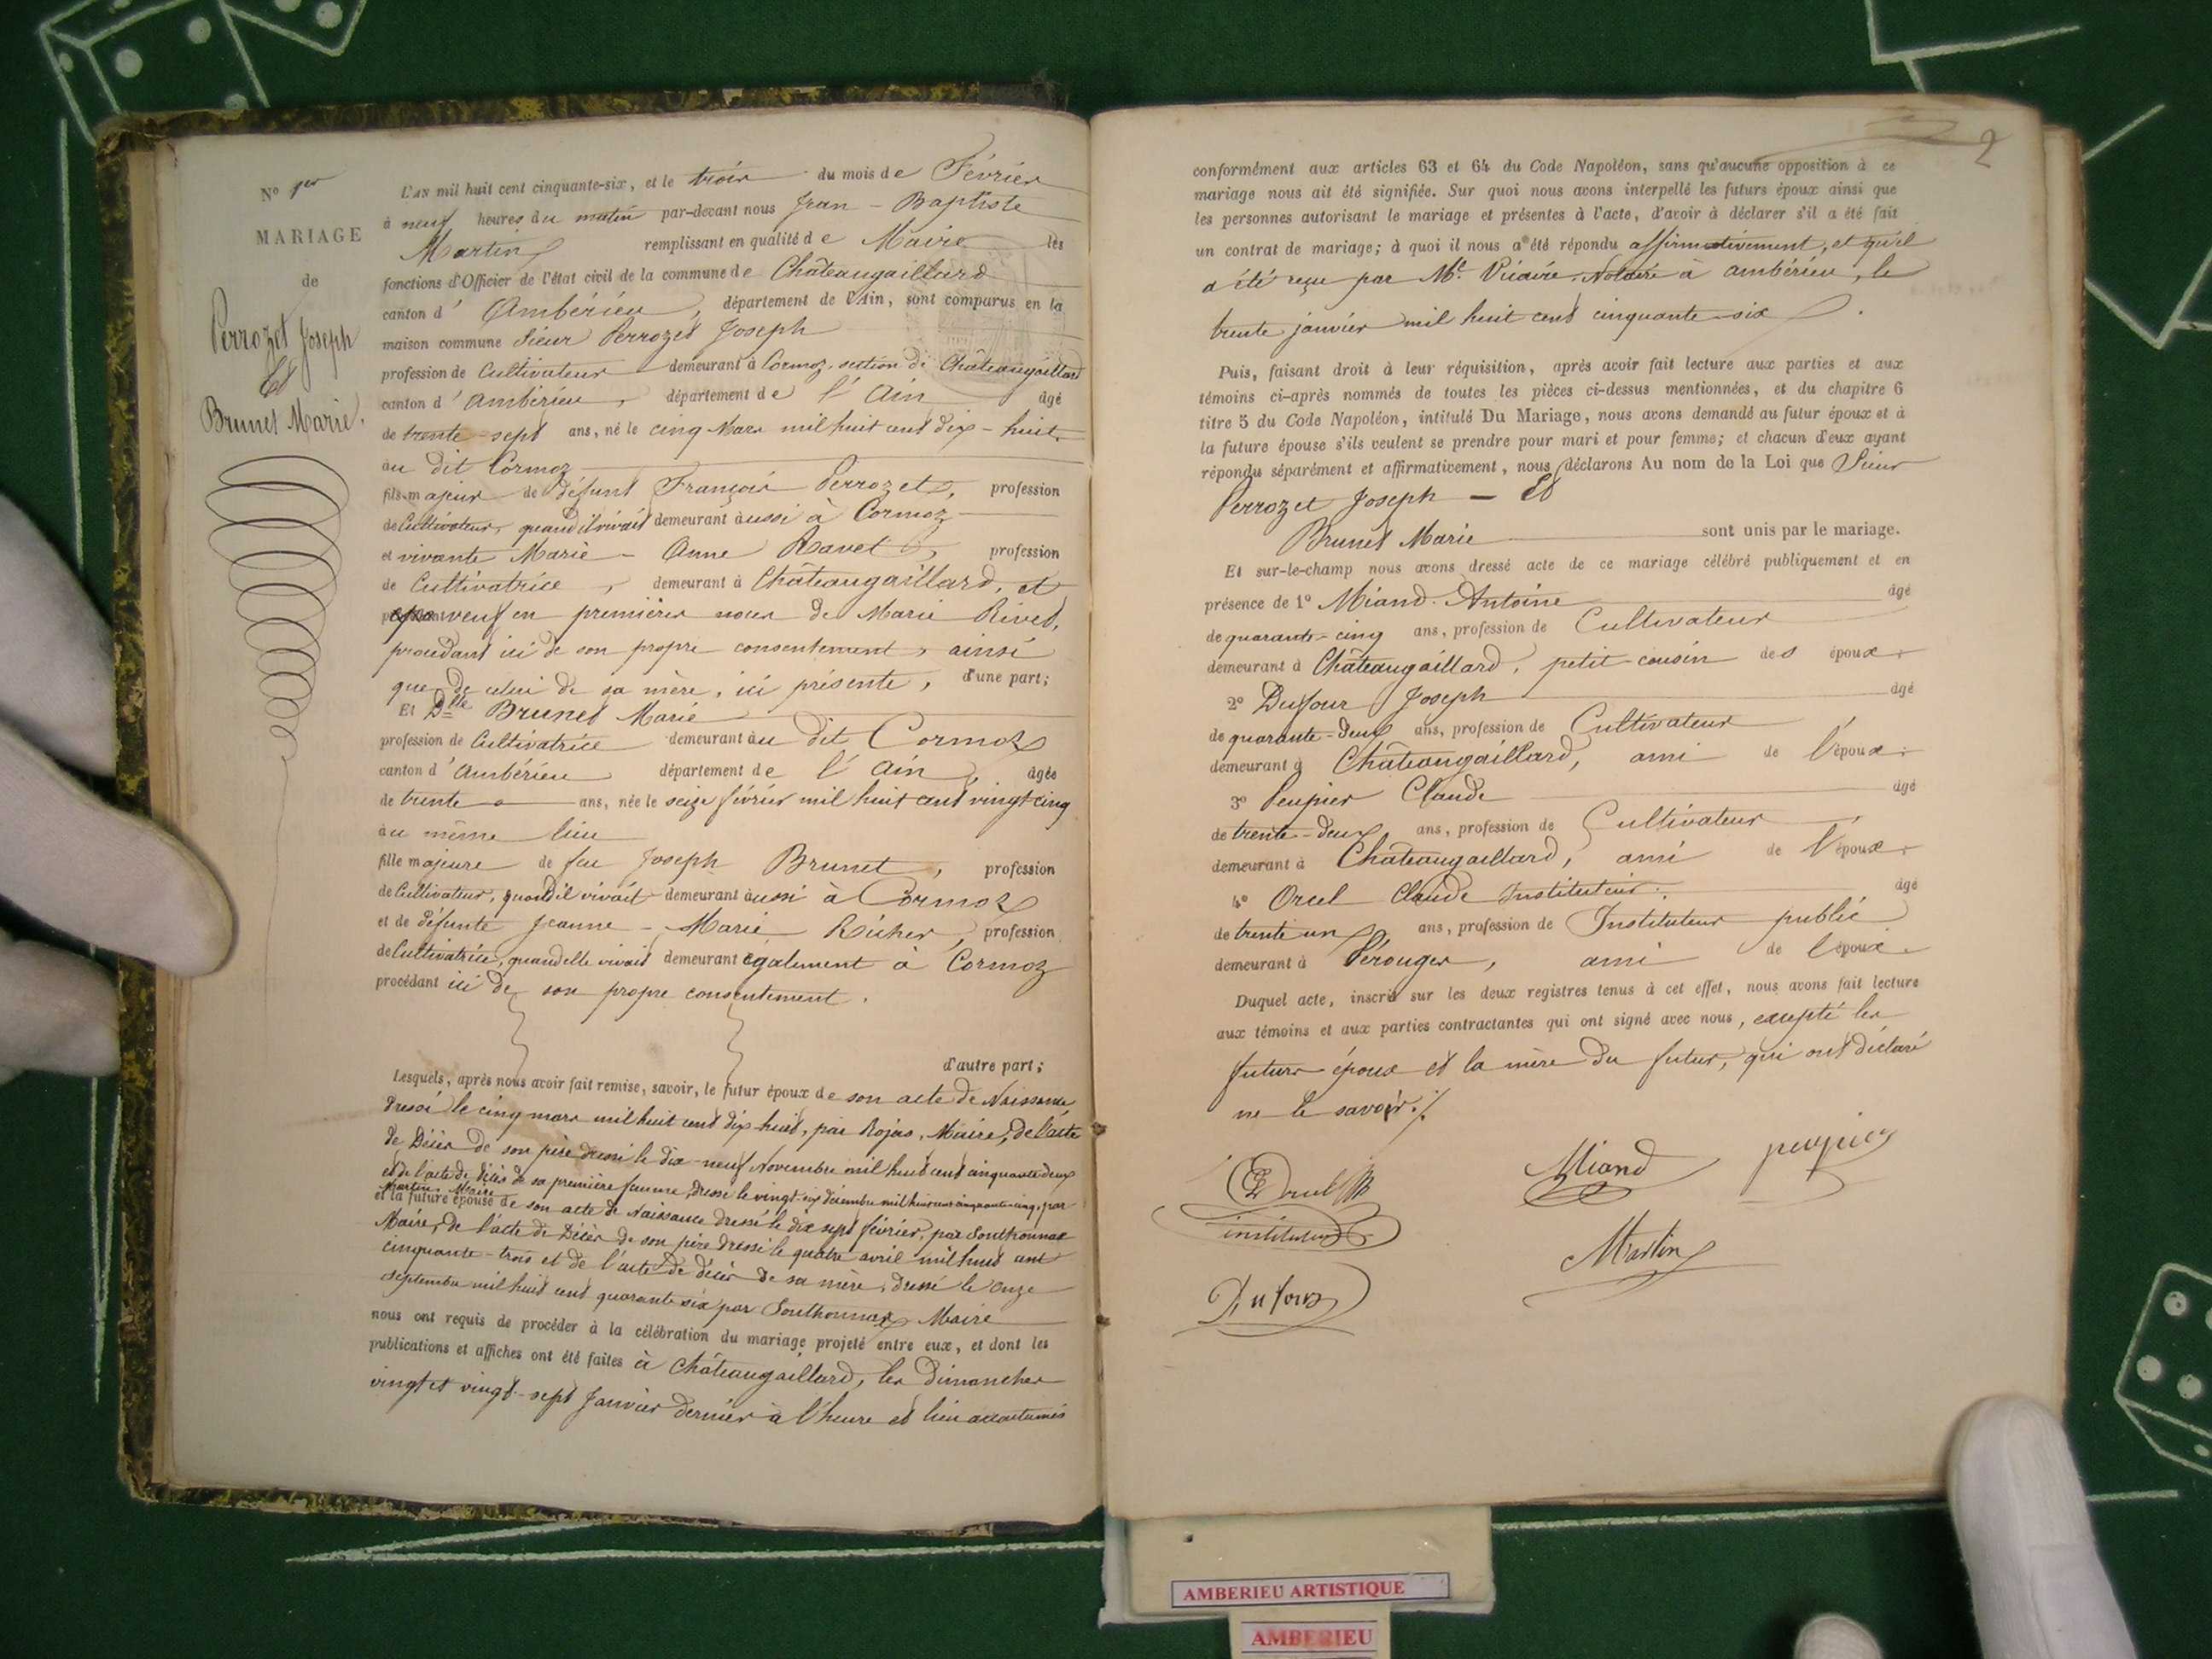 N° 1er
MARIAGE
de
Perrozet Joseph
Et
Brunet Marie.
L'AN mil huit cent cinquante-six, et le trois du mois de Février
à neuf heures du matin par-devant nous Jean-Baptiste
Martin remplissant en qualité de Maire les
fonctions d'Officier de l'état civil de la commune de Châteaugaillard
canton d'Ambérieu, département de l'Ain, sont comparus en la
maison commune Sieur Perrozet Joseph
profession de Cultivateur demeurant à Cormoz, section de Châteaugaillard
canton d'ambérieu, département de l'Ain âgé
de trente-sept ans, né le cinq Mars mil huit cent dix-huit
au dit Cormoz
fils majeur de défunt François Perrozet, profession
de Cultivateur, quand il vivait demeurant aussi à Cormoz
et vivante Marie-Anne Ravet, profession
de Cultivatrice, demeurant à Châteaugaillard, et
veuf en premières noces de Marie Rivet,
procédant ici de son propre consentement, ainsi
que de celui de sa mère, ici présente, d'une part;
Et Dlle Brunet Marie
profession de Cultivatrice demeurant au dit Cormoz
canton d'Ambérieu département de l'Ain, âgée
de trente ans, née le seize février mil huit cent vingt cinq
au même lieu
fille majeure de feu Joseph Brunet, profession
de Cultivateur, quand il vivait demeurant aussi à Cormoz
et de défunte Jeanne-Marie Richer, profession
de Cultivatrice, quand elle vivait demeurant également à Cormoz
procédant ici de son propre consentement.
d'autre part;
Lesquels, après nous avoir fait remise, savoir, le futur époux de son acte de Naissance
dressé le cinq mars mil huit cent dix huit, par Rojas, Maire, de l'acte
de Décès de son père dressé le dix-neuf Novembre mil huit cent cinquante deux
et de l'acte de décès de sa première femme, dressé le vingt-six décembre mil huit cent cinquante-cinq, par
Martin Maire
et la future épouse de son acte de Naissance dressé le dix sept février, par Southonnax
Maire, de l'acte de Décès de son père dressé le quatre avril mil huit cent
cinquante-trois et de l'acte de décès de sa mère, dressé le onze
septembre mil huit cent quarante six par Southonnax Maire
nous ont requis de procéder à la célébration du mariage projeté entre eux, et dont les
publications et affiches ont été faites à Châteaugaillard, les Dimanches
vingt et vingt-sept Janvier dernier à l'heure et lieu accoutumés
2
conformément aux articles 63 et 64 du Code Napoléon, sans qu'aucune opposition à ce
mariage nous ait été signifiée. Sur quoi nous avons interpellé les futurs époux ainsi que
les personnes autorisant le mariage et présentes à l'acte, d'avoir à déclarer s'il a été fait
un contrat de mariage; à quoi il nous a été répondu affirmativement, et qu'il
a été reçu par Me. Vicaire, Notaire à ambérieu, le
trente janvier mil huit cent cinquante six.
Puis, faisant droit à leur réquisition, après avoir fait lecture aux parties et aux
témoins ci-après nommés de toutes les pièces ci-dessus mentionnées, et du chapitre 6
titre 5 du Code Napoléon, intitulé Du Mariage, nous avons demandé au futur époux et à
la future épouse s'ils veulent se prendre pour mari et pour femme; et chacun d'eux ayant
répondu séparément et affirmativement, nous déclarons Au nom de la Loi que Sieur
Perrozet Joseph — Et
Brunet Marie sont unis par le mariage.
Et sur-le-champ nous avons dressé acte de ce mariage célébré publiquement et en
présence de 1° Miand Antoine âgé
de quarante-cinq ans, profession de Cultivateur
demeurant à Châteaugaillard, petit-cousin des époux
2° Dufour Joseph âgé
de quarante-deux ans, profession de Cultivateur
demeurant à Châteaugaillard, ami de l'époux
3° Peupier Claude âgé
de trente-deux ans, profession de Cultivateur
demeurant à Châteaugaillard, ami de l'époux
4° Orcel Claude Instituteur. âgé
de trente un ans, profession de Instituteur public
demeurant à Pérouges, ami de l'époux
Duquel acte, inscrit sur les deux registres tenus à cet effet, nous avons fait lecture
aux témoins et aux parties contractantes qui ont signé avec nous, excepté les
futurs époux et la mère du futur, qui ont déclaré
ne le savoir./.
Orcel Miand peupier
instituteur
Martin
Dufour
AMBERIEU ARTISTIQUE
AMBERIEU